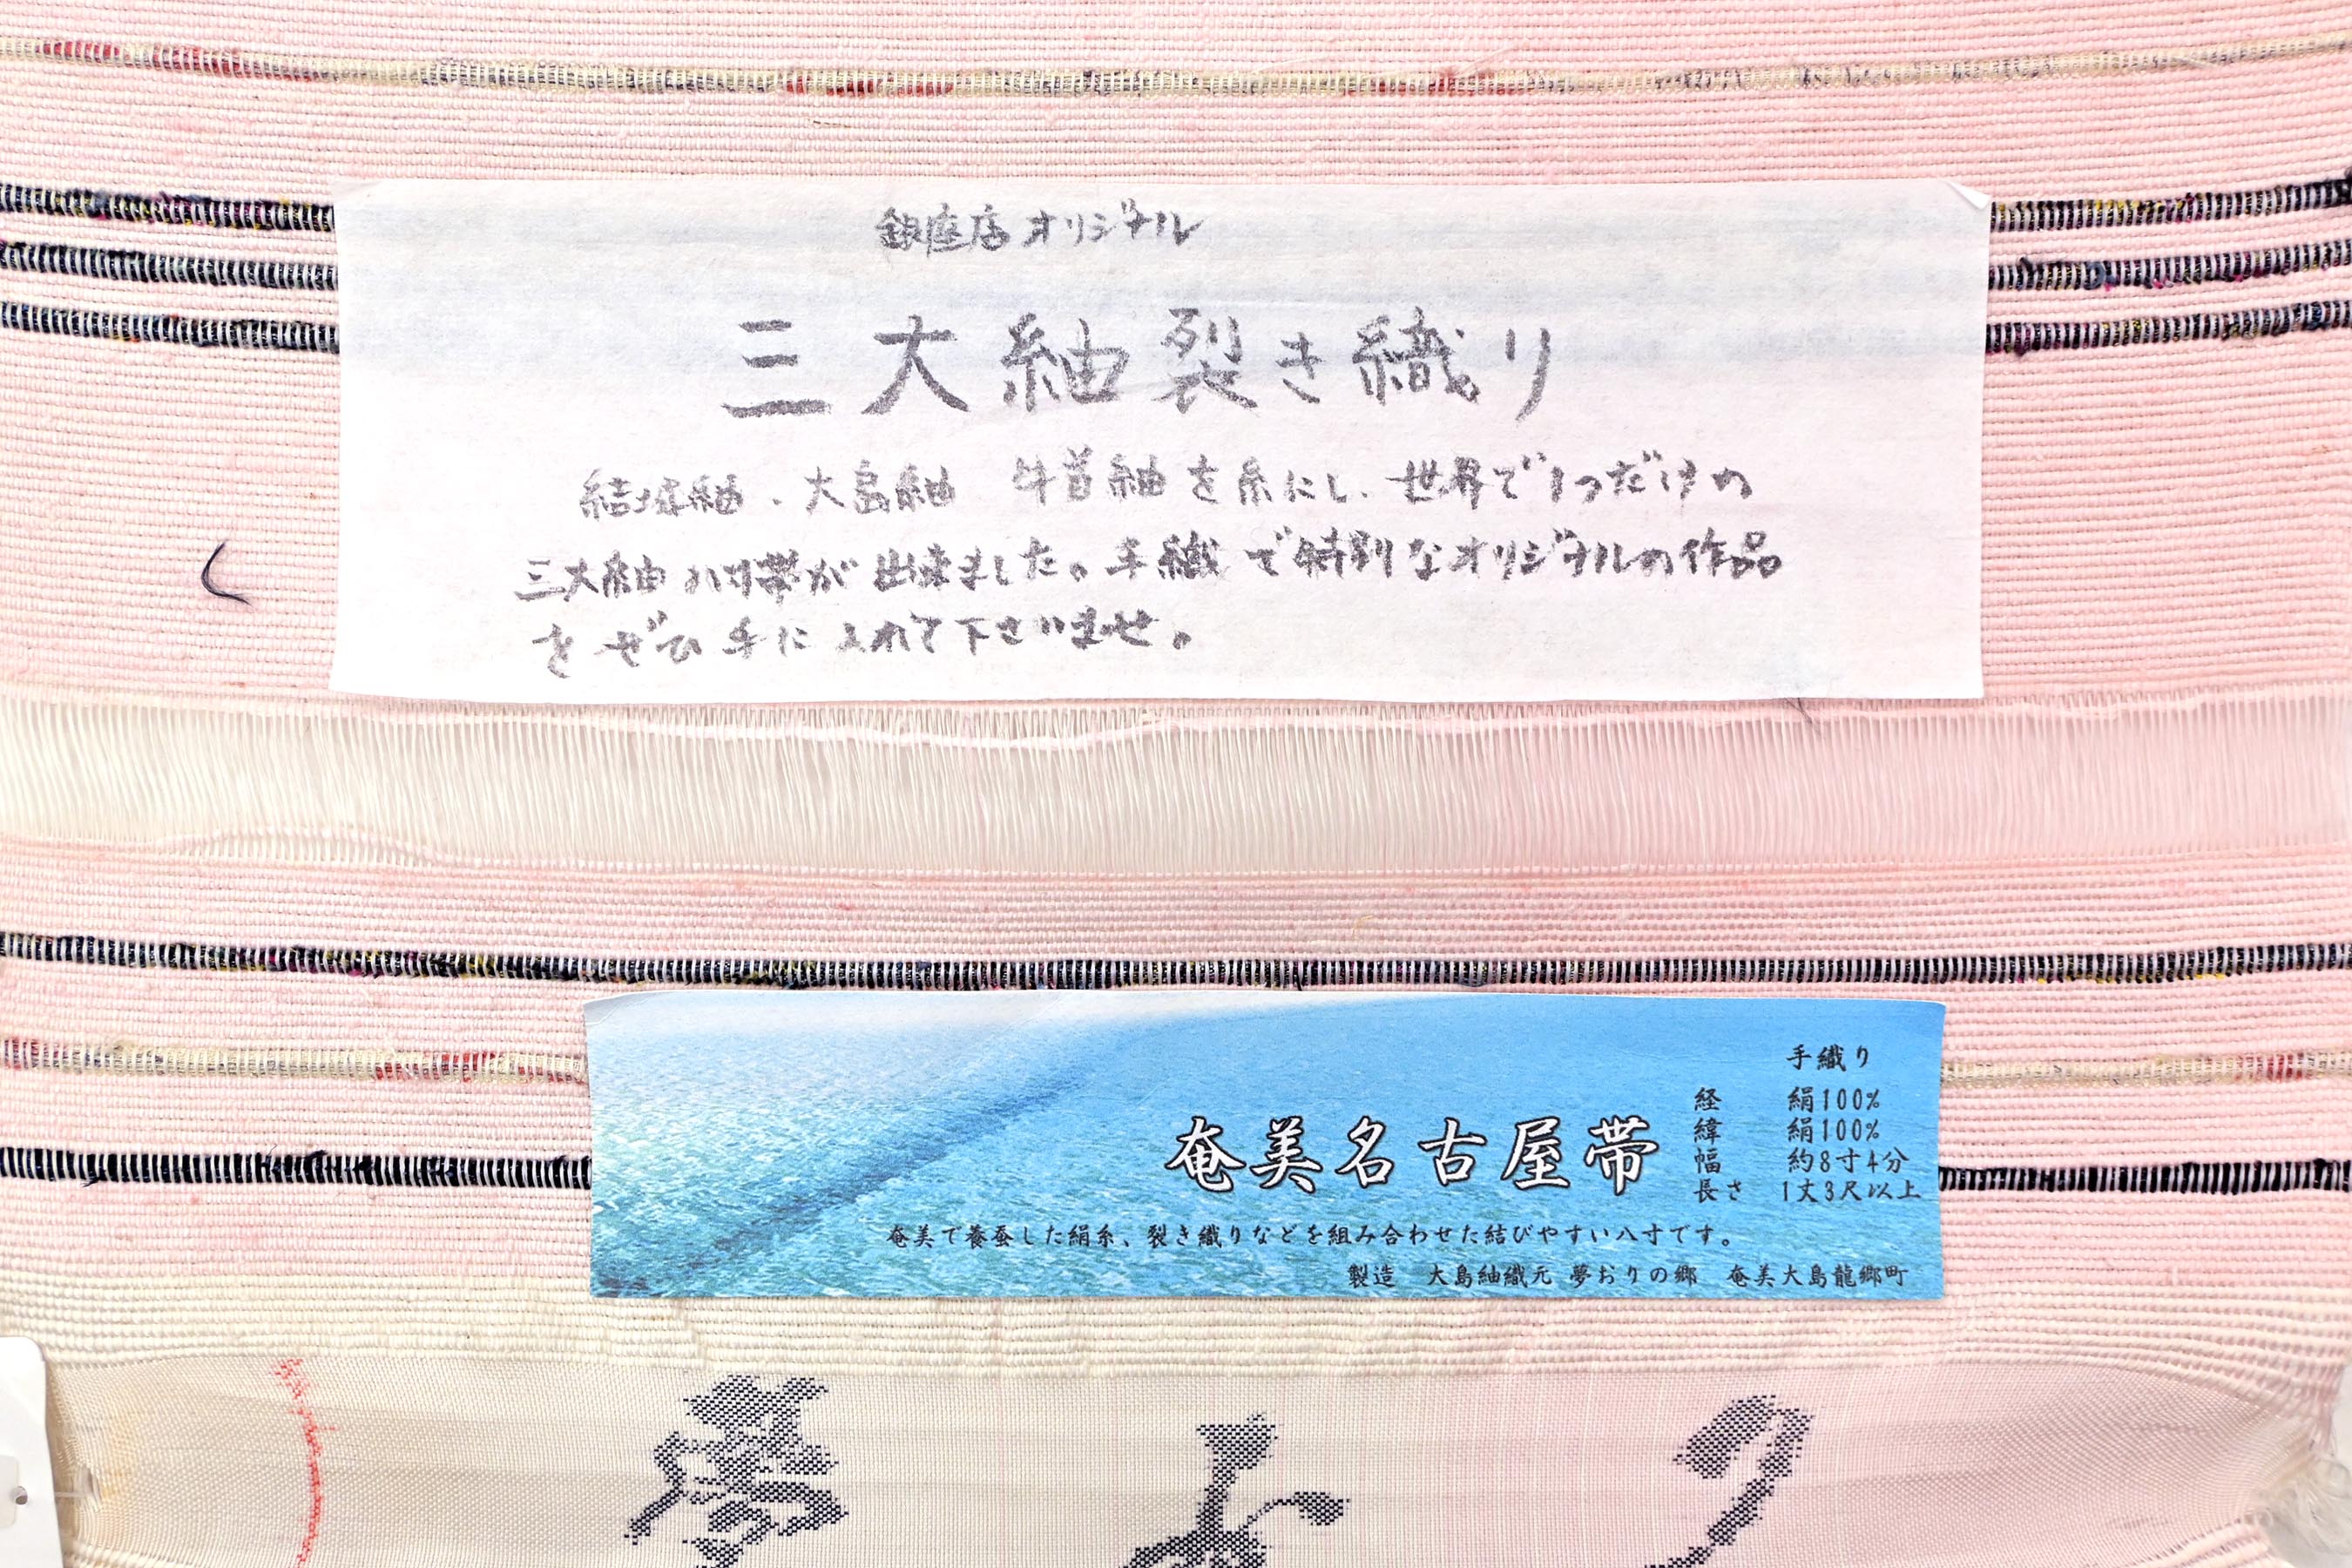 銀座店オリジナル
三大紬裂き織り
結城紬・大島紬 牛首紬を糸にし、世界で1つだけの
三大紬八寸帯が出来ました。手織で特別なオリジナルの作品
をぜひ手に入れて下さいませ。
手織り
経 絹100%
緯 絹100%
幅 約8寸4分
長さ 1丈3尺以上
奄美名古屋帯
奄美で養蚕した絹糸、裂き織りなどを組み合わせた結びやすい八寸です。
製造 大島紬織元 夢おりの郷 奄美大島龍郷町
夢 お り